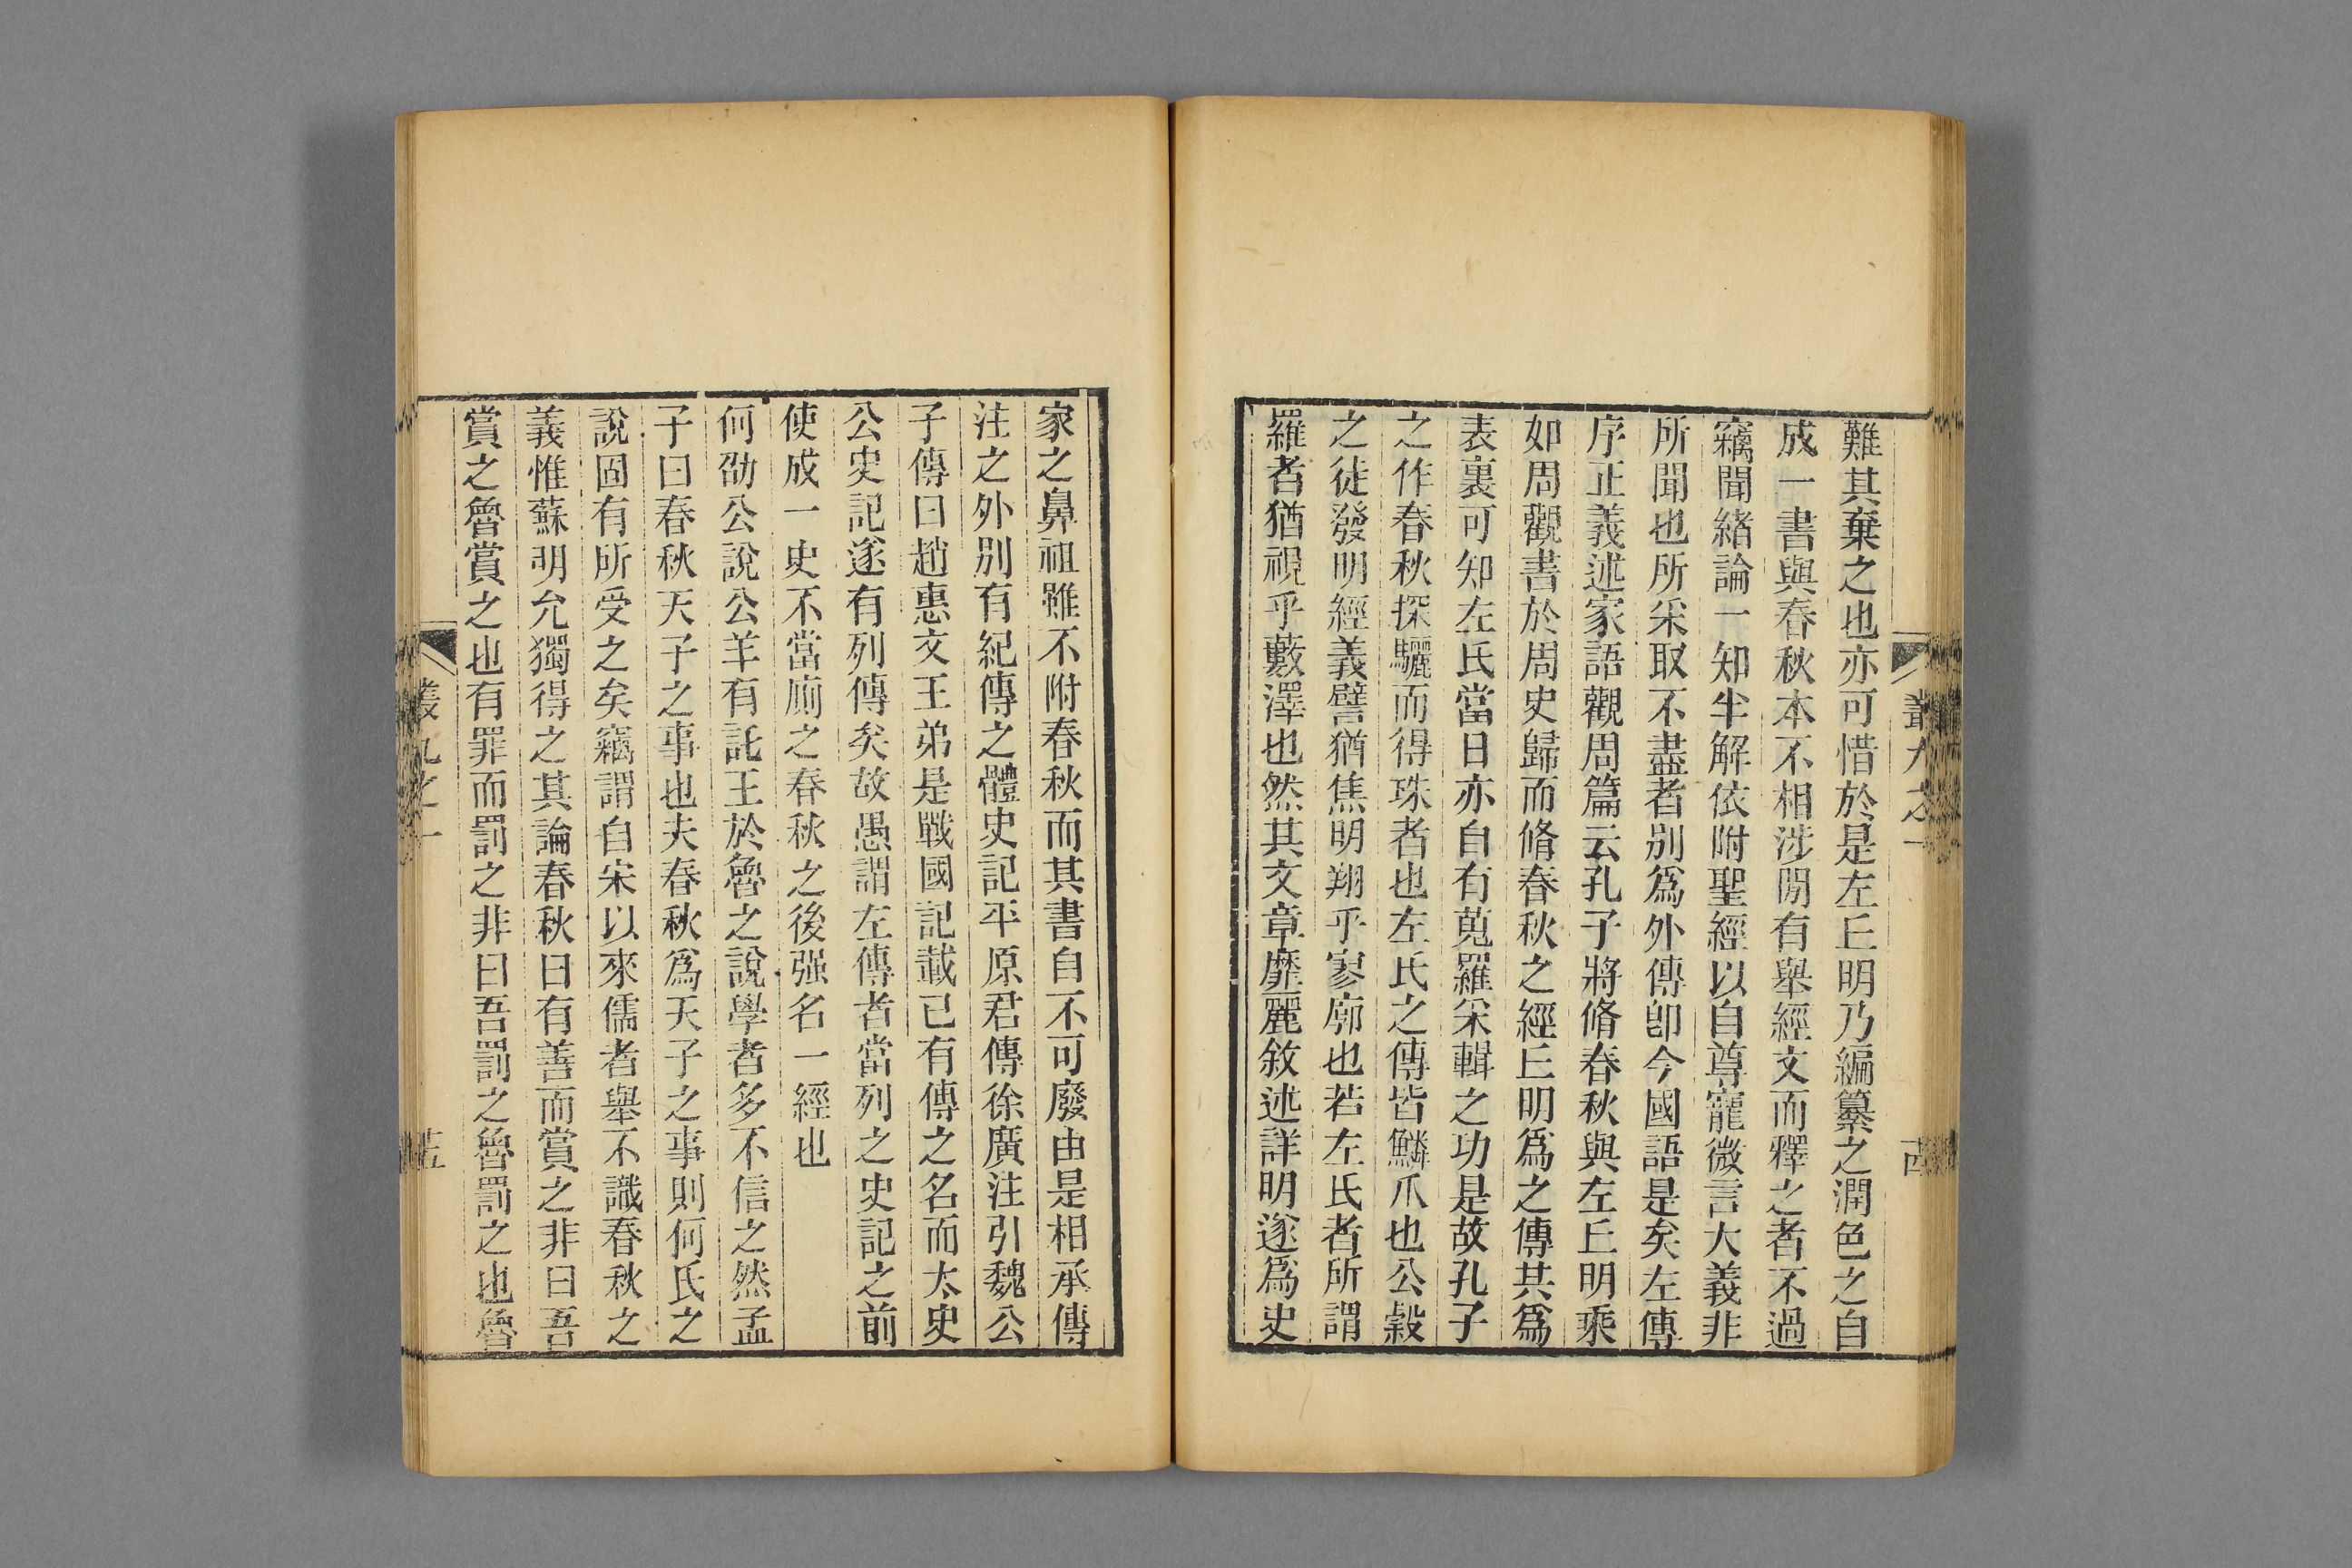 叢九之一
難其棄之也亦可惜於是左丘明乃編纂之潤色之自
成一書與春秋本不相涉閒有舉經文而釋之者不過
竊聞緒論一知半解依附聖經以自尊寵微言大義非
所聞也所采取不盡者別爲外傳卽今國語是矣左傳
序正義述家語觀周篇云孔子將脩春秋與左丘明乘
如周觀書於周史歸而脩春秋之經丘明爲之傳其爲
表裏可知左氏當日亦自有蒐羅采輯之功是故孔子
之作春秋探驪而得珠者也左氏之傳皆鱗爪也公穀
之徒發明經義譬猶焦明翔乎寥廓也若左氏者所謂
羅者猶視乎藪澤也然其文章靡麗敘述詳明遂爲史
家之鼻祖雖不附春秋而其書自不可廢由是相承傳
注之外別有紀傳之體史記平原君傳徐廣注引魏公
子傳曰趙惠文王弟是戰國記載已有傳之名而太史
公史記遂有列傳矣故愚謂左傳者當列之史記之前
使成一史不當廁之春秋之後强名一經也
何劭公說公羊有託王於魯之說學者多不信之然孟
子曰春秋天子之事也夫春秋爲天子之事則何氏之
說固有所受之矣竊謂自宋以來儒者舉不識春秋之
義惟蘇明允獨得之其論春秋曰有善而賞之非曰吾
賞之魯賞之也有罪而罰之非曰吾罰之魯罰之也魯
叢九之一